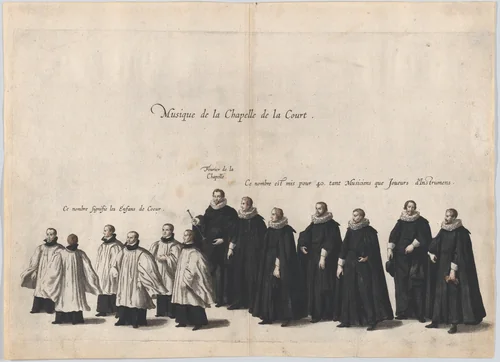 Musique de la Chapelle de la Court.
de la
Chapelle
Ce nombre est mis pour 40. tant Musiciens que Joueurs d'Instrumens.
Ce nombre signifie les Enfans de Coeur.